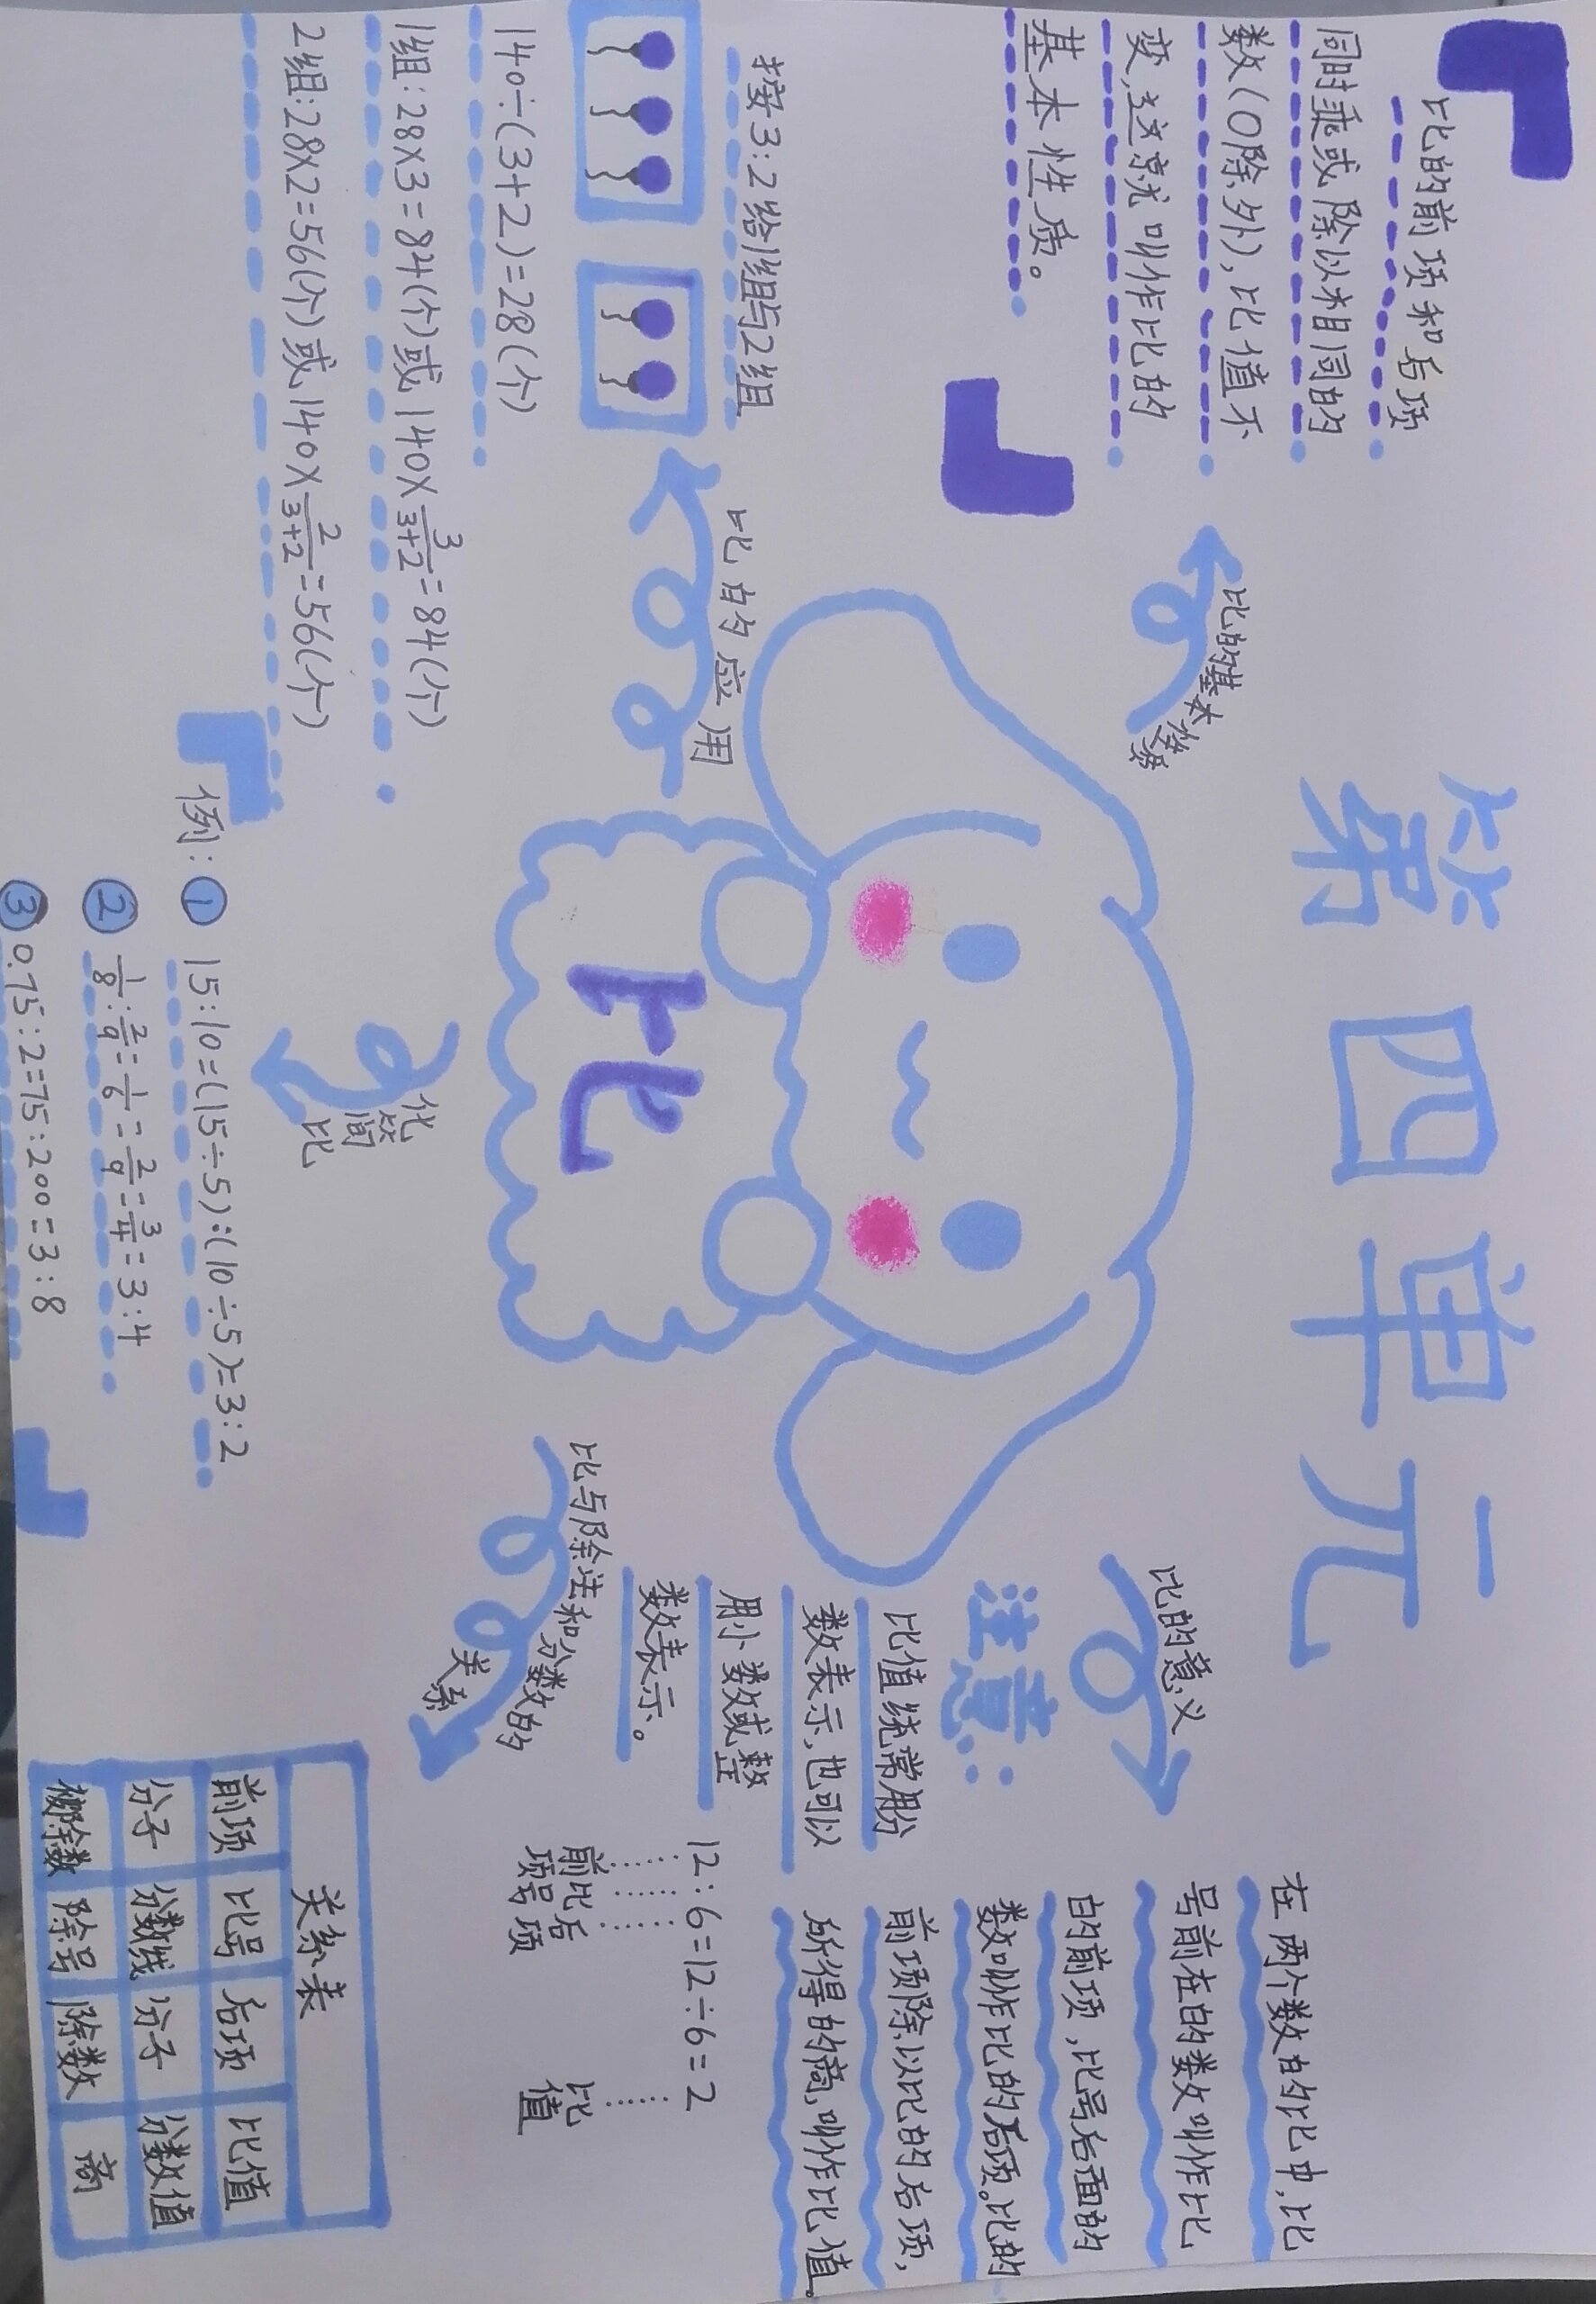 第四单元
比
比的基本性质
比的前项和后项
同时乘或除以相同的
数(0除外),比值不
变,这就叫作比的
基本性质。
比的应用
按3:2给1组与2组
140÷(3+2)=28(个)
1组:28×3=84(个)或140×3/3+2=84(个)
2组:28×2=56(个)或140×2/3+2=56(个)
化简比
例:① 15:10=(15÷5):(10÷5)=3:2
② 1/8:2/9=1/6=2/9=3/4=3:4
③ 0.75:2=75:200=3:8
比的意义
在两个数的比中,比
号前在的数叫作比
的前项,比号后面的
数叫作比的后项。比的
前项除以比的后项,
所得的商,叫作比值。
注意:
比值统常用分
数表示,也可以
用小数或整
数表示。
12:6=12÷6=2
前项 比号 后项 比值
比与除法和分数的
关系
关系表
前项 比号 后项 比值
分子 分数线 分子 分数值
被除数 除号 除数 商